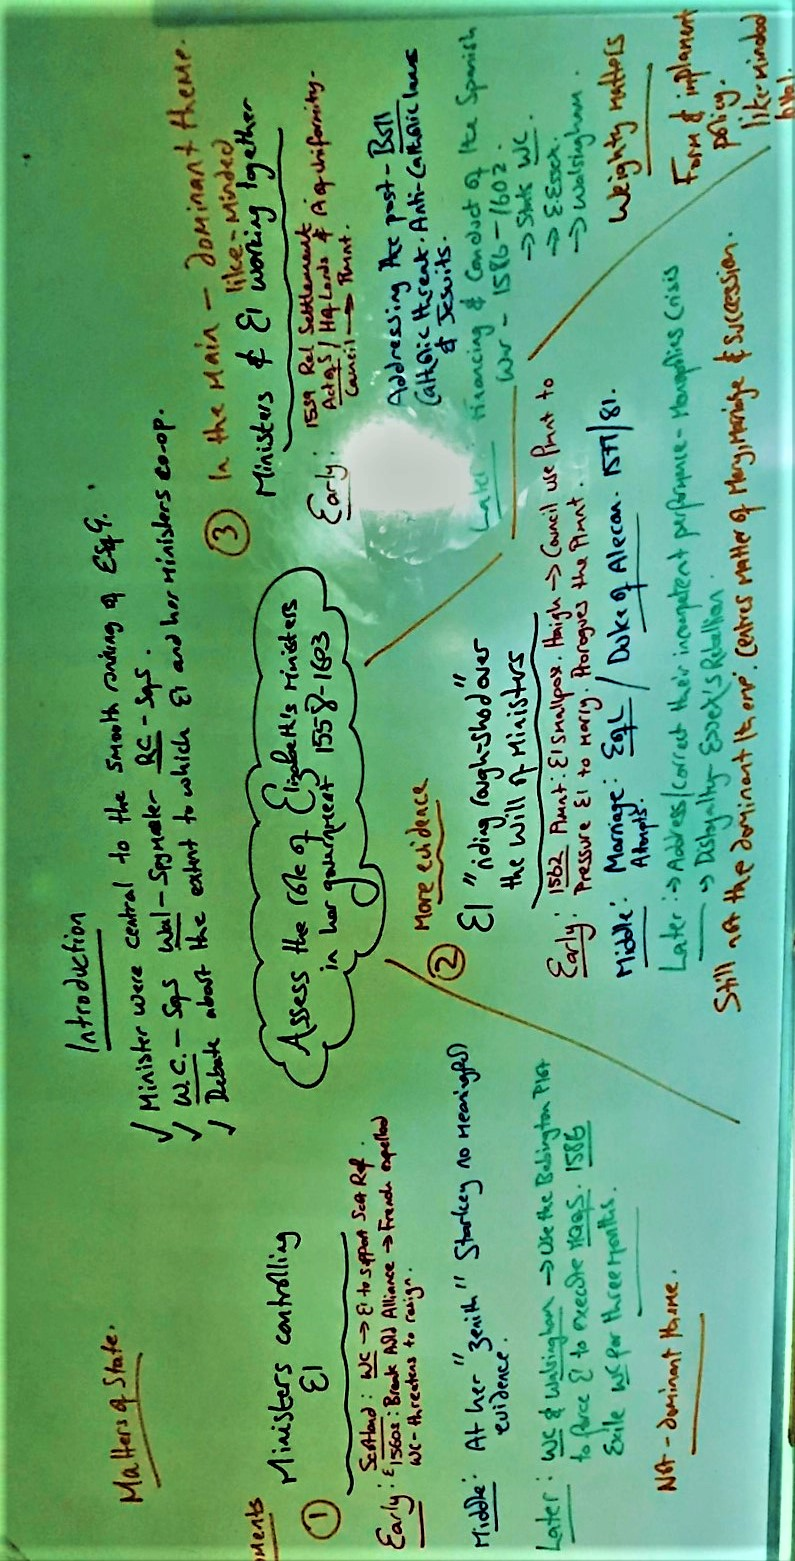 Introduction
✓ Minister were central to the smooth running of E1's G.
✓ W.C. - Sqs Wal - Spymaster RC - Sqs.
✓ Debate about the extent to which E1 and her Ministers co-op.
Assess the role of Elizabeth's Ministers
in her government 1558-1603
Matters of State.
ments
① Ministers controlling
E1
Scotland: WC → E1 to support Scot Ref.
Early: 1560s: Break Auld Alliance → French expelled
WC - threatens to resign.
Middle: At her "Zenith" Starkey no meaningful
evidence.
Later: WC & Walsingham → Use the Babington Plot
to force E to execute MQofS. 1586
Exile WC for three months.
Not - dominant theme.
More evidence
② E1 "riding rough-shod over
the will of Ministers
Early: 1562 Pmnt: E1 smallpox. Haigh → Council use Pmnt to
Pressure E1 to marry. Prorogues the Pmnt.
Middle: Marriage: EofL / Duke of Alecon. 1577/81.
Atempts.
Later: → Address/correct their incompetent performance - Monopolies Crisis
→ Disloyalty - Essex's Rebellion.
Still not the dominant theme. Centres matter of Mary, Marriage & Succession.
③ In the main - dominant theme.
like-minded
Ministers & E1 working together
Early: 1559 Rel Settlement
Act of S / Hof Lords & A of Uniformity.
Council → Pmnt.
Addressing the post-Bull
Catholic threat. Anti-Catholic laws
& Jesuits.
Later: Financing & Conduct of the Spanish
War - 1586-1602.
→ Stats WC.
→ E. Essex.
→ Walsingham.
Weighty matters
Form & implement
policy.
like minded